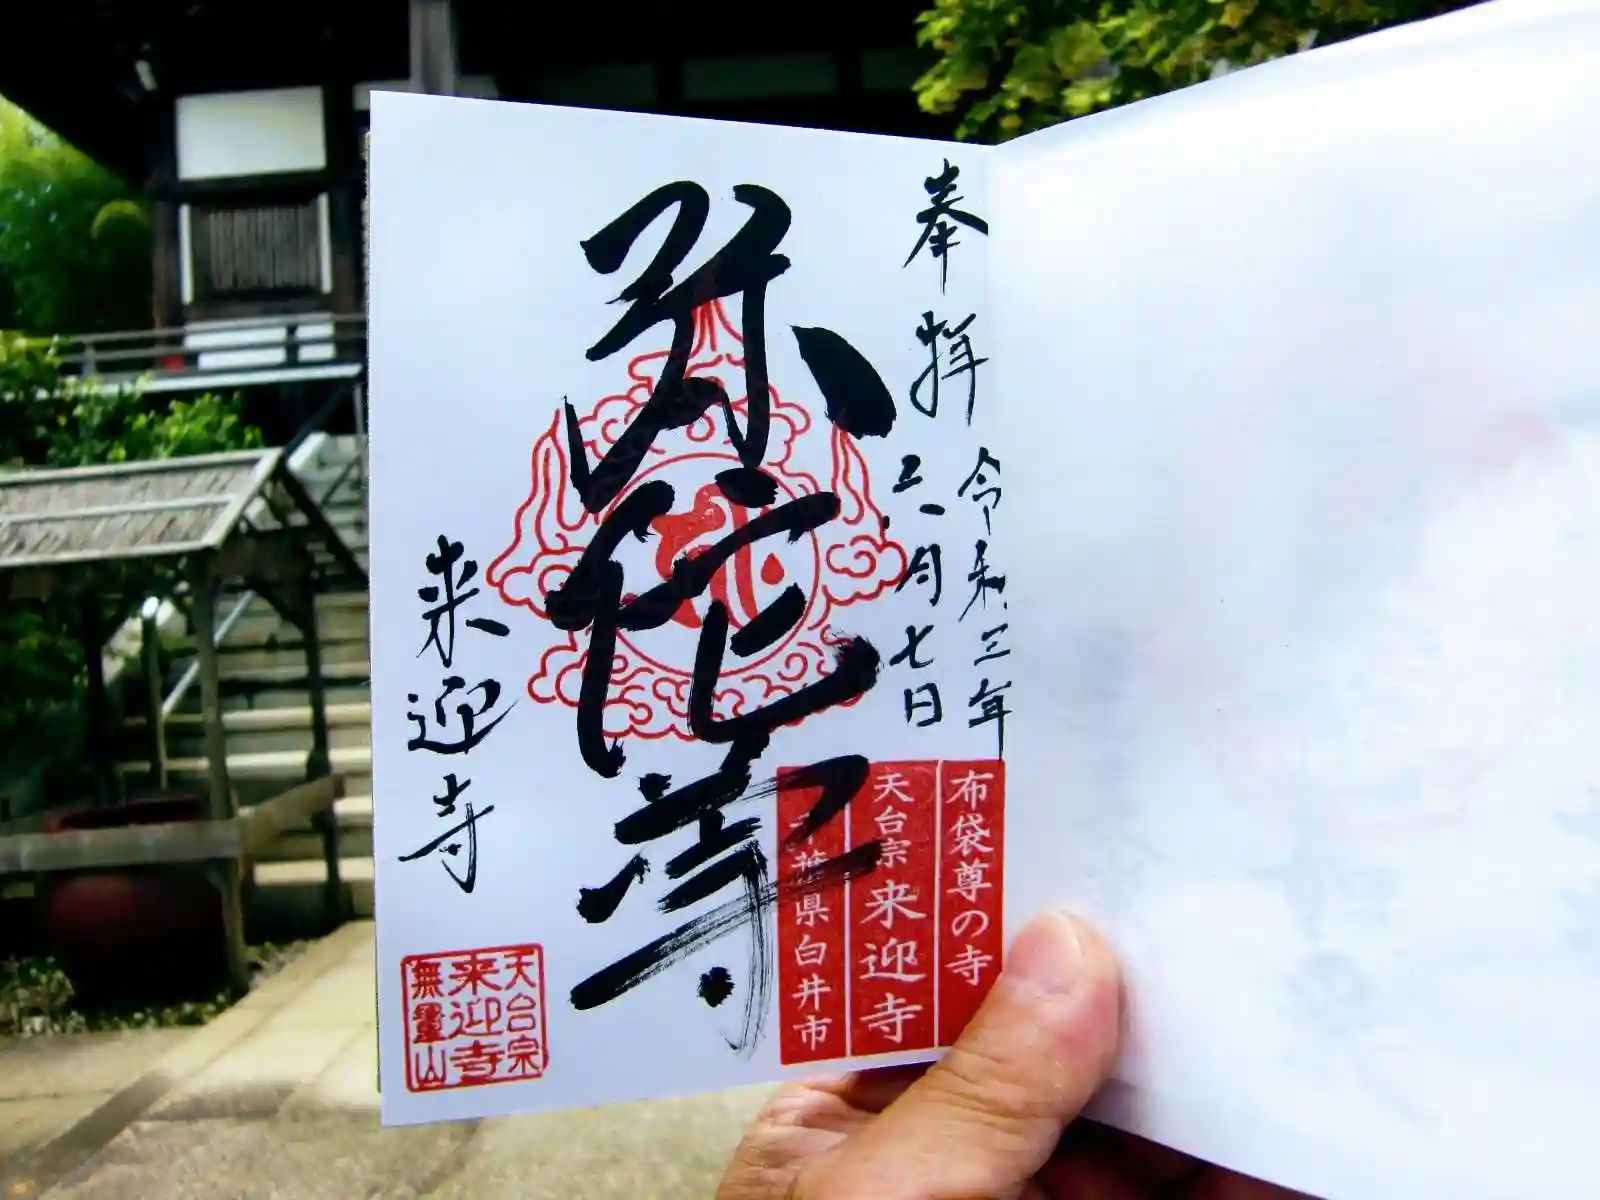 奉拝
令和三年
六月七日
弥陀尊
来迎寺
布袋尊の寺
天台宗 来迎寺
千葉県白井市
天台宗
来迎寺
無量山